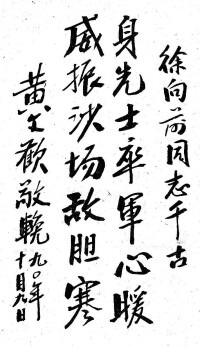 徐向前同志千古
身先士卒军心暖
威振沙场敌胆寒
黄文欢敬輓
一九九〇年
十月九日